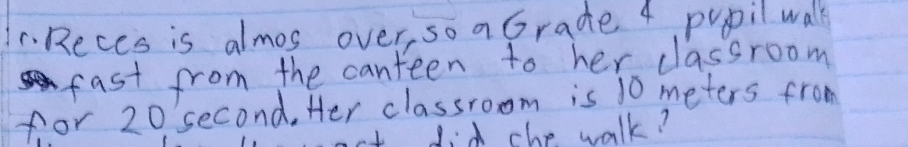 1. Reces is almos over, so a Grade 4 pupil walk
fast from the canteen to her classroom
for 20 second. Her classroom is 10 meters from
did she walk?